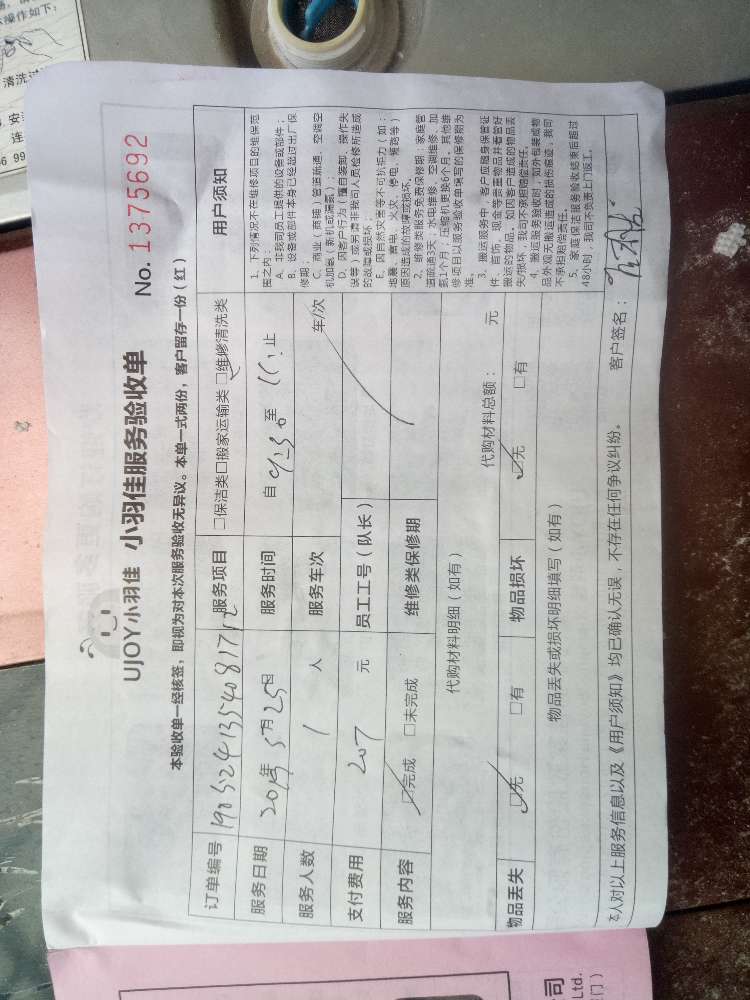 UJOY小羽佳 小羽佳服务验收单
No. 1375692
本验收单一经核签，即视为对本次服务验收无异议。本单一式两份，客户留存一份（红）
订单编号 服务项目 □保洁类□搬家运输类 □维修清洗类
服务日期 2019年5月25日 服务时间 自 9:30 至 11: 止
服务人数 1 人 服务车次 车/次
支付费用 207 元 员工工号（队长）
服务内容 □完成 □未完成 维修类保修期
代购材料明细（如有） 代购材料总额： 元
物品丢失 □无 □有 物品损坏 □无 □有
物品丢失或损坏明细填写（如有）
本人对以上服务信息以及《用户须知》均已确认无误，不存在任何争议纠纷。 客户签名：
用户须知
1、下列情况不在维修项目的维保范
围之内：
A、非我司员工提供的设备或部件；
B、设备或部件本身已经超过出厂保
修期；
C、商业（商铺）管道疏通、空调空
机加氨（新机或漏氨）；
D、因客户行为（擅自装卸、操作失
误等）或另请非我司人员检修所造成
的故障或损坏；
E、因自然灾害等不可抗拒力（如：
地震、雷电、火灾、停电、催残等）
原因造成的故障或损坏。
2、维修类服务免费保修期：家庭管
道疏通3天；水电维修、空调维修、加
氨1个月；压缩机更换6个月，其他维
修项目以服务验收单填写的保修期为
准。
3、搬运服务中，客户应随身保管证
件、首饰、现金等贵重物品并看管好
搬运的物品。如因客户造成的物品丢
失/毁坏，我司不承担赔偿责任。
4、搬运服务验收时，如外包装或物
品外观无搬运造成的损伤痕迹，我司
不承担赔偿责任。
5、家庭保洁服务验收结束后超过
48小时，我司不负责上门返工。
操作如下：
清洗过
连
司
Ltd.
门）